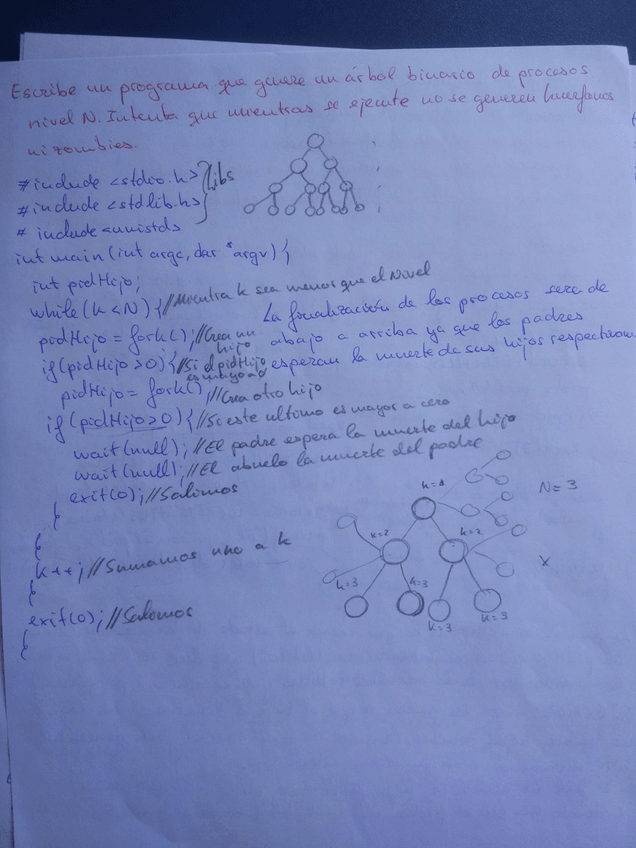 Escribe un programa que genere un árbol binario de procesos
nivel N. Intenta que mientras se ejecute no se generen huerfanos
ni zombies.
# include <stdio.h>
# include <stdlib.h> } libs
# include <unistd>
int main (int argc, char *argv) {
int pidHijo;
while (k < N) { // Mientra k sea menos que el Nivel
pidHijo = fork(); // Crea un hijo
La finalización de los procesos sera de
abajo a arriba ya que los padres
esperam la muerte de sus hijos
if (pidHijo > 0) { // Si el pidHijo es mayor a 0
pidHijo = fork(); // Crea otro hijo
if (pidHijo > 0) { // Si este ultimo es mayor a cero
wait (null); // El padre espera la muerte del hijo
wait (null); // El abuelo la muerte del padre
exit (0); // Salimos
}
}
k++; // Sumamos uno a k
}
exit (0); // Salimos
}
k=1
N = 3
k=2
k=2
x
k=3
k=3
k=3
k=3